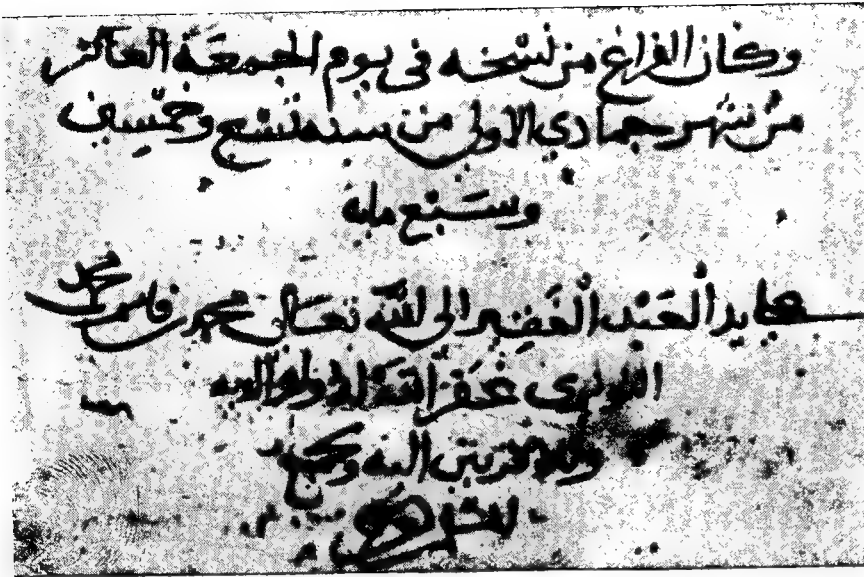 وكان الفراغ من نسخه في يوم الجمعة العاشر
من شهر جمادي الاولى من سنة تسع وخمسين
وسبع مايه
على يد العبد الفقير الى الله تعالى محمد بن قاسم بن محمد
النويري غفر الله له ولوالديه
اليه ولجميع